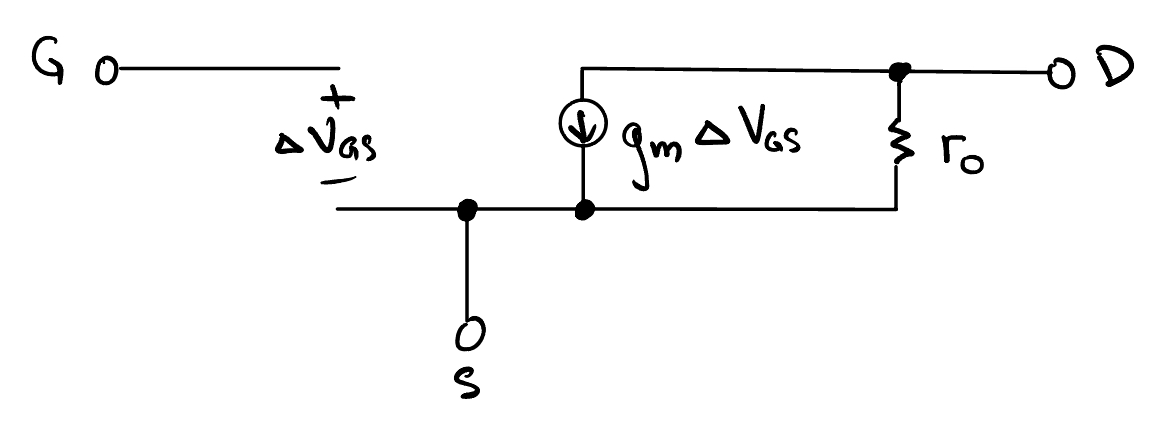 G
D
+
ΔVGS
−
gm ΔVGS
ro
S